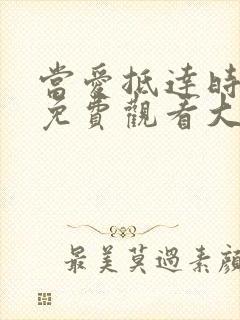 當愛抵達時
免費觀看大
最美莫過素顏